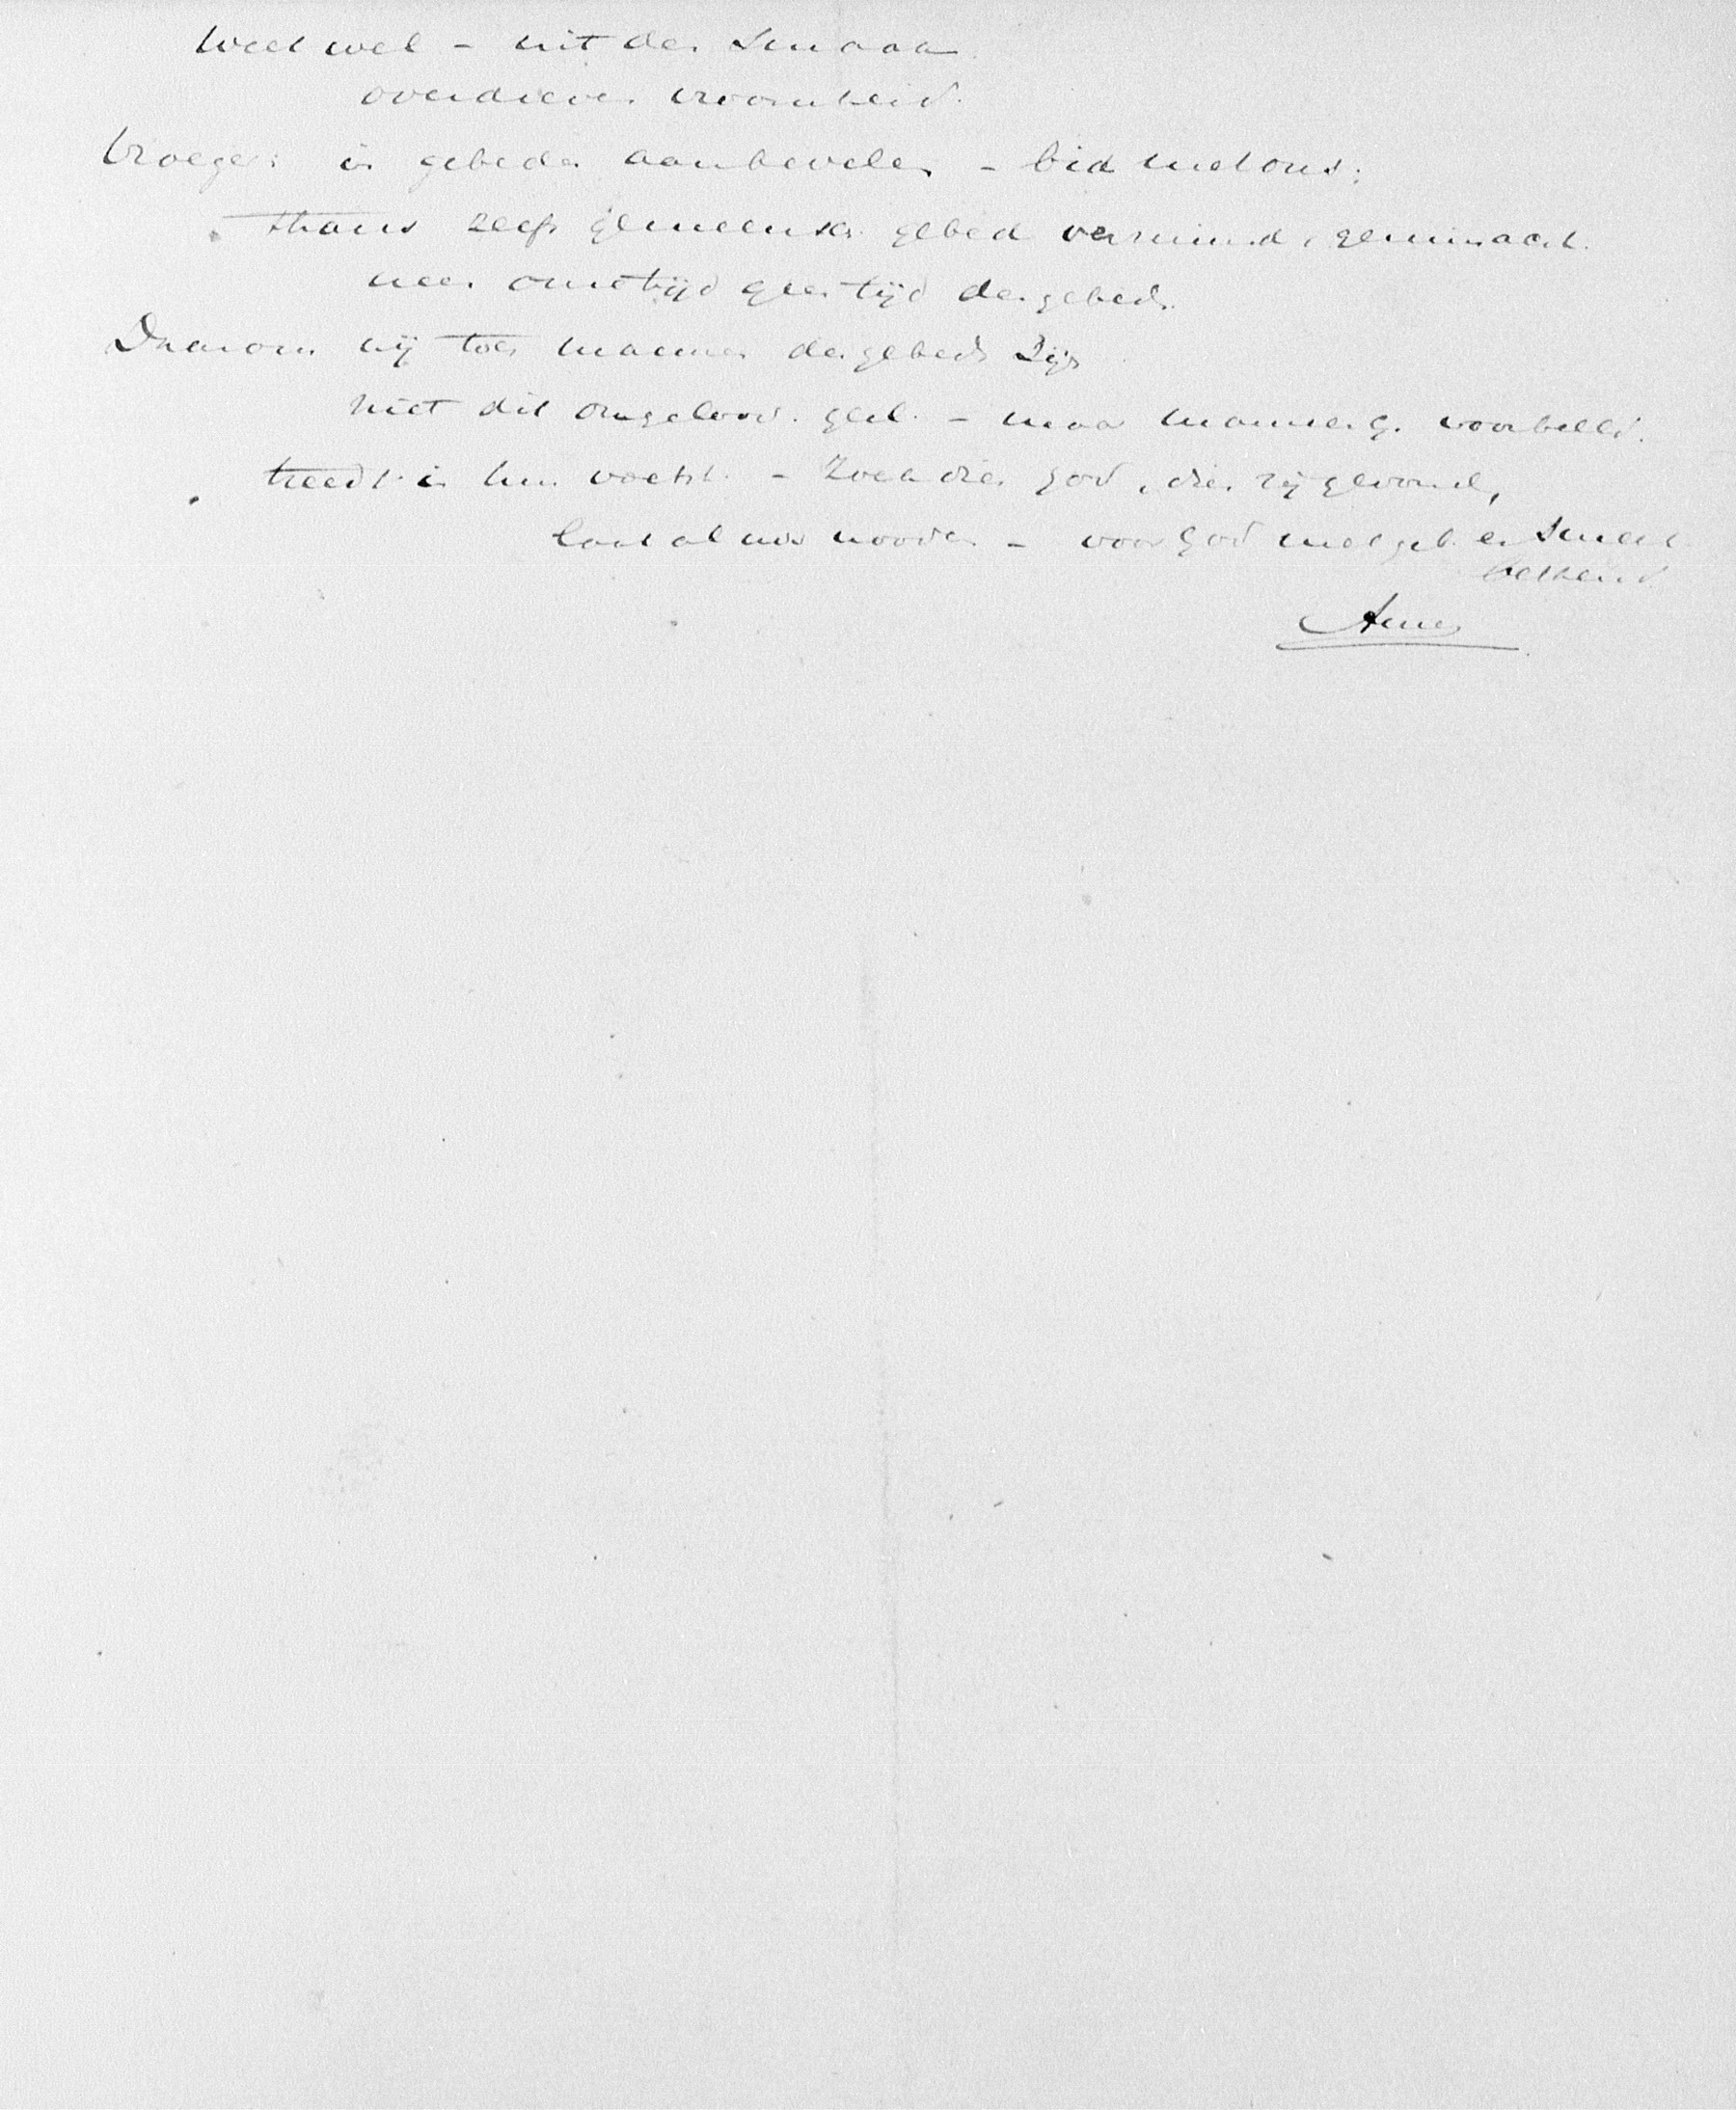 Weet wel - uit den smaak
overdreven vroomheid.
Vroeger: in gebeden aanbevelen - bid met ons:
thans zelfs gemeensch. gebed verzuimd, geminacht.
neen onze tijd geen tijd des gebeds.
Daarom wij toch mannen des gebeds zijn
niet dit ongeloov. gesl. - maar mannen G. voorbeeld.
treedt in hun voetst. - Zoek dien God, dien zij gevond,
laat al uw nooden - voor God met geb. en smeek.
bekend.
Amen